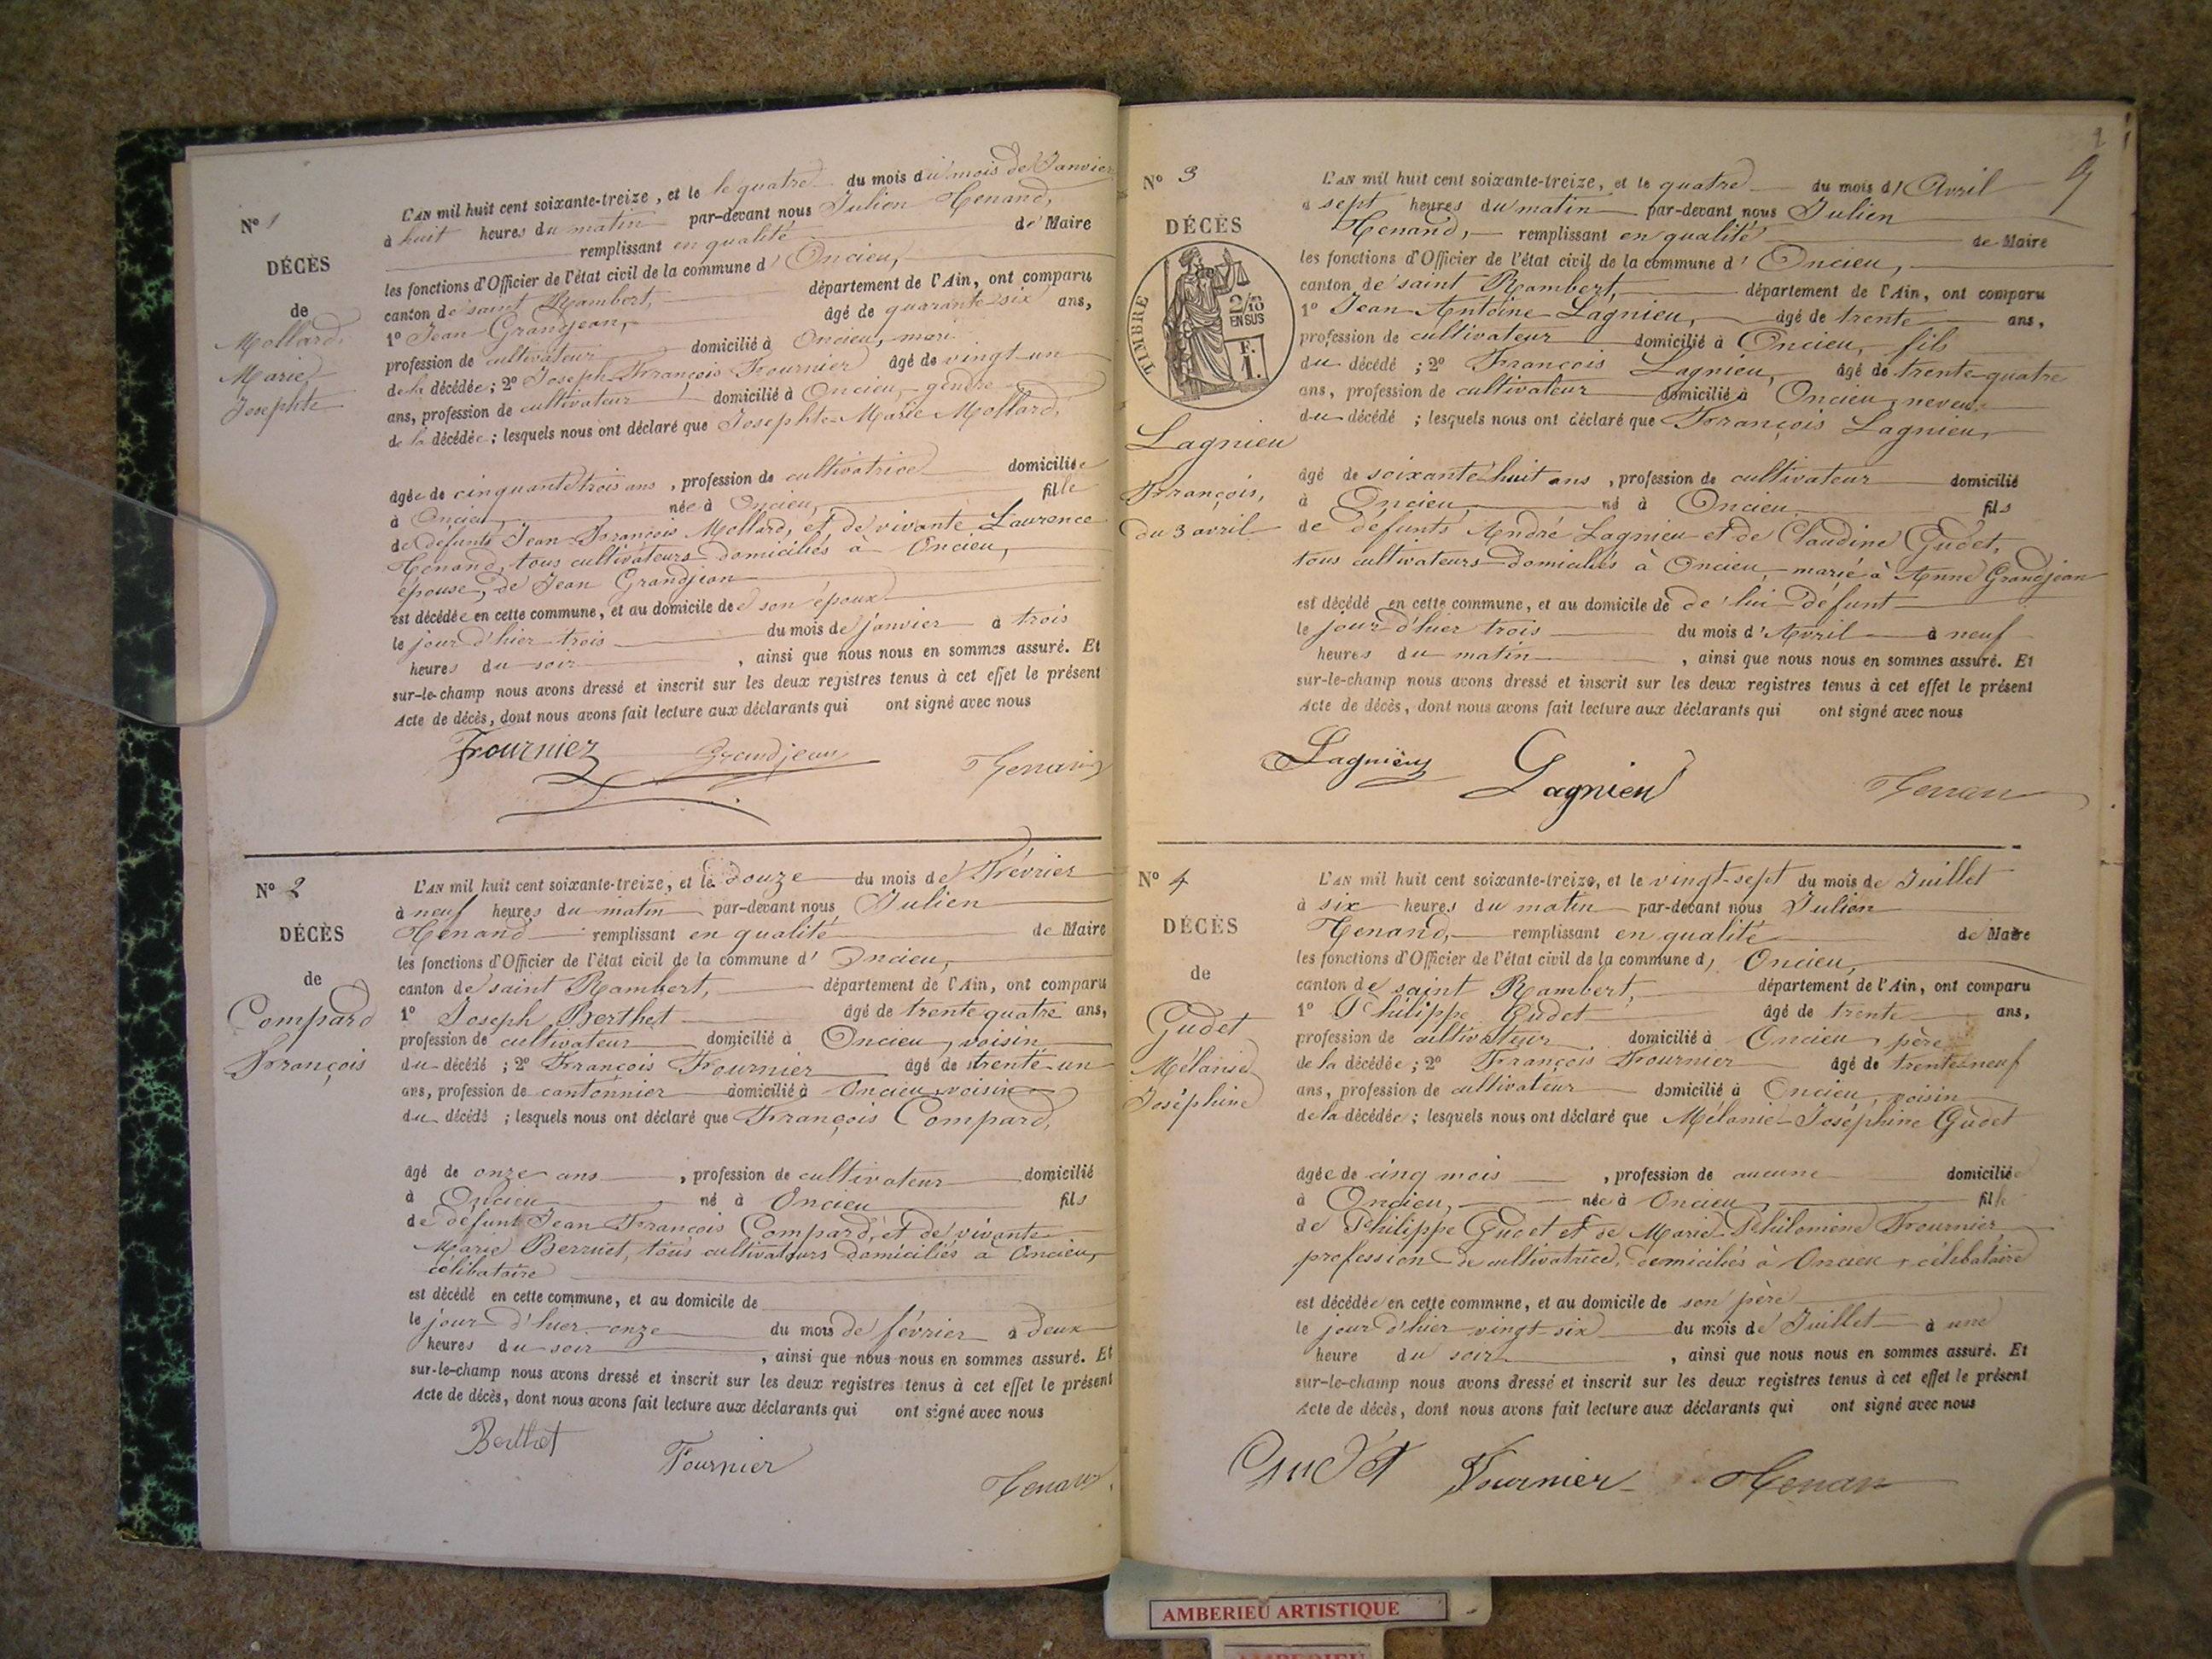 N° 1
DÉCÈS
de
Mollard
Marie
Josephte
L'AN mil huit cent soixante-treize, et le le quatre du mois du mois de Janvier
à huit heures du matin par-devant nous Julien Tenand,
remplissant en qualité de Maire
les fonctions d'Officier de l'état civil de la commune d' Oncieu,
canton de saint Rambert, département de l'Ain, ont comparu
1° Jean Grandjean, âgé de quarante six ans,
profession de cultivateur domicilié à Oncieu, mari
de la décédée ; 2° Joseph François Fournier âgé de vingt un
ans, profession de cultivateur domicilié à Oncieu, gendre
de la décédée ; lesquels nous ont déclaré que Josephte Marie Mollard,
âgée de cinquante trois ans , profession de cultivatrice domiciliée
à Oncieu, née à Oncieu, fille
de defunt Jean François Mollard, et de vivante Laurence
Tenand, tous cultivateurs domiciliés à Oncieu,
épouse, de Jean Grandjean
est décédée en cette commune, et au domicile de son époux
le jour d'hier trois du mois de janvier à trois
heures du soir , ainsi que nous nous en sommes assuré. Et
sur-le-champ nous avons dressé et inscrit sur les deux registres tenus à cet effet le présent
Acte de décès, dont nous avons fait lecture aux déclarants qui ont signé avec nous
Fournier Grandjean Tenand
N° 2
DÉCÈS
de
Compard
François
L'AN mil huit cent soixante-treize, et le douze du mois de Février
à neuf heures du matin par-devant nous Julien
Tenand remplissant en qualité de Maire
les fonctions d'Officier de l'état civil de la commune d' Oncieu,
canton de saint Rambert, département de l'Ain, ont comparu
1° Joseph Berthet âgé de trente quatre ans,
profession de cultivateur domicilié à Oncieu, voisin
du décédé ; 2° François Fournier âgé de trente un
ans, profession de cantonnier domicilié à Oncieu, voisin
du décédé ; lesquels nous ont déclaré que François Compard,
âgé de onze ans , profession de cultivateur domicilié
à Oncieu né à Oncieu fils
de défunt Jean François Compard, et de vivante
Marie Berruet, tous cultivateurs domiciliés à Oncieu,
célibataire
est décédé en cette commune, et au domicile de
le jour d'hier onze du mois de février à deux
heures du soir , ainsi que nous nous en sommes assuré. Et
sur-le-champ nous avons dressé et inscrit sur les deux registres tenus à cet effet le présent
Acte de décès, dont nous avons fait lecture aux déclarants qui ont signé avec nous
Berthet Fournier Tenand
2
N° 3
DÉCÈS
TIMBRE
2/10
EN SUS
F.
1.
Lagnieu
François,
du 3 avril
L'AN mil huit cent soixante-treize, et le quatre du mois d' Avril
à sept heures du matin par-devant nous Julien
Tenand, remplissant en qualité de Maire
les fonctions d'Officier de l'état civil de la commune d' Oncieu,
canton de saint Rambert, département de l'Ain, ont comparu
1° Jean Antoine Lagnieu, âgé de trente ans,
profession de cultivateur domicilié à Oncieu, fils
du décédé ; 2° François Lagnieu, âgé de trente-quatre
ans, profession de cultivateur domicilié à Oncieu, neveu
du décédé ; lesquels nous ont déclaré que François Lagnieu,
âgé de soixante huit ans , profession de cultivateur domicilié
à Oncieu, né à Oncieu fils
de defunts André Lagnieu et de Claudine Gudet,
tous cultivateurs domiciliés à Oncieu, marié à Anne Grandjean
est décédé en cette commune, et au domicile de de lui défunt
le jour d'hier trois du mois d'Avril à neuf
heures du matin , ainsi que nous nous en sommes assuré. Et
sur-le-champ nous avons dressé et inscrit sur les deux registres tenus à cet effet le présent
Acte de décès, dont nous avons fait lecture aux déclarants qui ont signé avec nous
Lagnieu Lagnieu Tenand
N° 4
DÉCÈS
de
Gudet
Mélanie
Joséphine
L'AN mil huit cent soixante-treize, et le vingt-sept du mois de Juillet
à six heures du matin par-devant nous Julien
Tenand, remplissant en qualité de Maire
les fonctions d'Officier de l'état civil de la commune d' Oncieu,
canton de saint Rambert, département de l'Ain, ont comparu
1° Philippe Gudet âgé de trente ans,
profession de cultivateur domicilié à Oncieu, père
de la décédée ; 2° François Fournier âgé de trente-neuf
ans, profession de cultivateur domicilié à Oncieu, voisin
de la décédée ; lesquels nous ont déclaré que Mélanie-Joséphine Gudet
âgée de cinq mois , profession de aucune domiciliée
à Oncieu, née à Oncieu, fille
de Philippe Gudet et de Marie Philomène Fournier
profession de cultivatrice, domiciliés à Oncieu, célibataire
est décédée en cette commune, et au domicile de son père
le jour d'hier vingt-six du mois de Juillet à une
heure du soir , ainsi que nous nous en sommes assuré. Et
sur-le-champ nous avons dressé et inscrit sur les deux registres tenus à cet effet le présent
Acte de décès, dont nous avons fait lecture aux déclarants qui ont signé avec nous
Gudet Fournier Tenand
AMBERIEU ARTISTIQUE
AMBERIEU